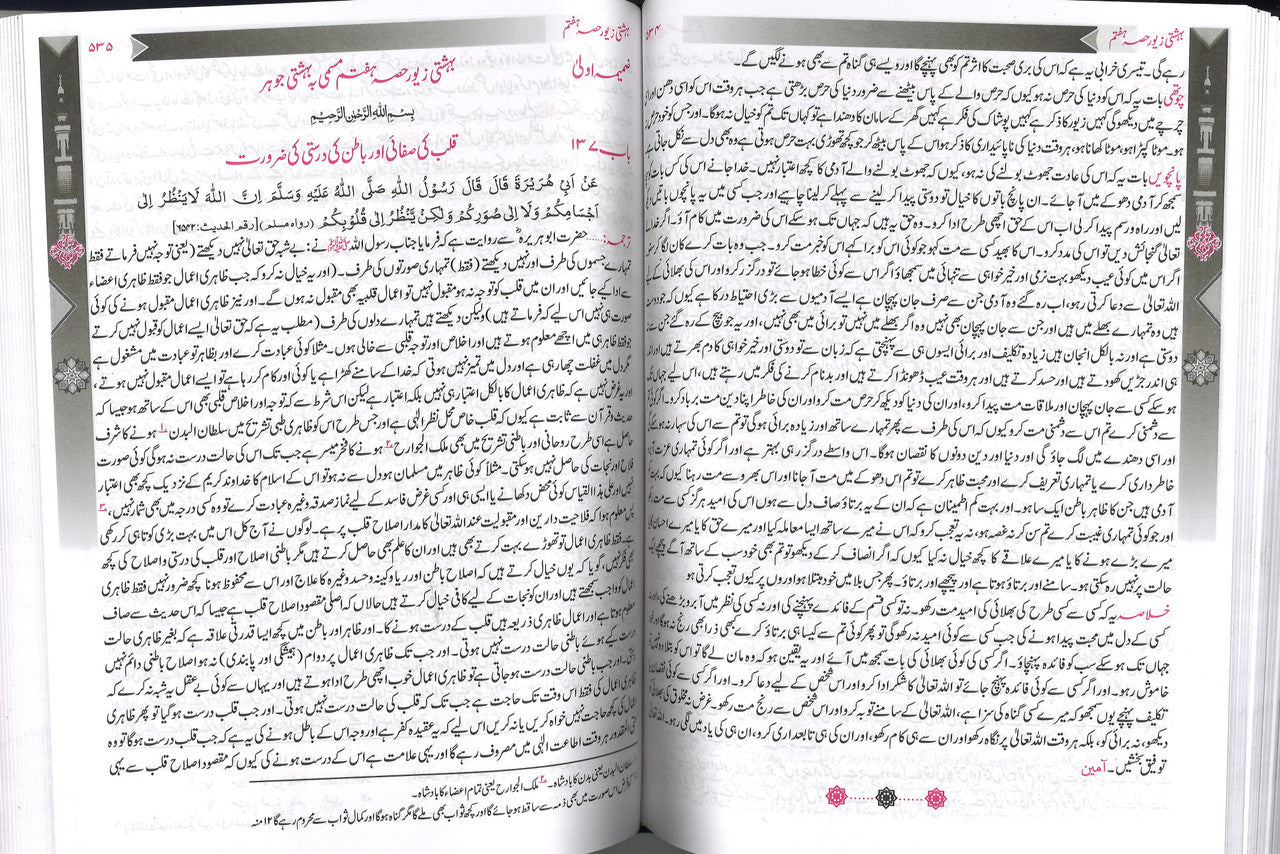 بہشتی زیور حصہ ہفتم
۵۳۴
رہے گی۔ تیسری خرابی یہ ہے کہ اس کی بری صحبت کا اثر تم کو بھی پہنچے گا اور ویسے ہی گناہ تم سے بھی ہونے لگیں گے۔
چوتھی بات یہ کہ اس کو دنیا کی حرص نہ ہو کیوں کہ حرص والے کے پاس بیٹھنے سے ضرور دنیا کی حرص بڑھتی ہے جب ہر وقت اس کو اسی دھن اور اسی
چرچے میں دیکھو گی کہیں زیور کا ذکر ہے کہیں پوشاک کی فکر ہے کہیں گھر کے سامان کا دھندا ہے تو کہاں تک تم کو خیال نہ ہوگا۔ اور جس کو خود حرص نہ
ہو۔ موٹا کپڑا ہو، موٹا کھانا ہو، ہر وقت دنیا کی نا پائیداری کا ذکر ہو اس کے پاس بیٹھ کر جو کچھ تھوڑی بہت حرص ہوتی ہے وہ بھی دل سے نکل جاتی ہے
پانچویں بات یہ کہ اس کی عادت جھوٹ بولنے کی نہ ہو، کیوں کہ جھوٹ بولنے والے آدمی کا کچھ اعتبار نہیں۔ خدا جانے اس کی کس بات کو
سمجھ کر آدمی دھوکے میں آ جائے۔ ان پانچ باتوں کا خیال تو دوستی پیدا کر لینے سے پہلے کر لینا چاہیے اور جب کسی میں یہ پانچوں باتیں
لیں اور راہ و رسم پیدا کر لی اب اس کے حق اچھی طرح ادا کرو۔ وہ حق یہ ہیں کہ جہاں تک ہو سکے اس کی ضرورت میں کام آؤ۔ اگر خدا
تعالیٰ گنجائش دیں تو اس کی مدد کرو۔ اس کا بھید کسی سے مت کہو جو کوئی اس کو برا کہے اس کو خبر مت کرو۔ جب وہ بات کرے کان لگا کر سنو
اگر اس میں کوئی عیب دیکھو بہت نرمی اور خیر خواہی سے تنہائی میں سمجھا دو اگر اس سے کوئی خطا ہو جائے تو درگزر کرو اور اس کی بھلائی کے لیے
اللہ تعالیٰ سے دعا کرتی رہو، اب رہ گئے وہ آدمی جن سے صرف جان پہچان ہے ایسے آدمیوں سے بڑی احتیاط درکار ہے کیوں کہ جو دوست
ہیں وہ تمہارے بھلے میں ہیں اور جن سے جان پہچان بھی نہیں وہ اگر بھلے میں نہیں تو برائی میں بھی نہیں، اور یہ جو بیچ کے رہ گئے جن سے نہ
دوستی ہے اور نہ بالکل انجان ہیں زیادہ تکلیف اور برائی ایسوں ہی سے پہنچتی ہے کہ زبان سے تو دوستی اور خیر خواہی کا دم بھرتے ہیں اور اندر
ہی اندر جڑیں کھودتے ہیں اور حسد کرتے ہیں اور ہر وقت عیب ڈھونڈا کرتے ہیں اور بدنام کرنے کی فکر میں رہتے ہیں، اس لیے جہاں تک
ہو سکے کسی سے جان پہچان اور ملاقات مت پیدا کرو، اور ان کی دنیا کو دیکھ کر حرص مت کرو اور ان کی خاطر اپنا دین مت برباد کرو۔ اگر کوئی
سے دشمنی کرے تم اس سے دشمنی مت کرو کیوں کہ اس کی طرف سے پھر تمہارے ساتھ اور زیادہ برائی ہوگی تو تم سے اس کی سہار نہ ہوگی
اور اسی دھندے میں لگ جاؤ گی اور دنیا اور دین دونوں کا نقصان ہوگا۔ اس واسطے درگزر ہی بہتر ہے اور اگر کوئی تمہاری عزت
خاطر داری کرے یا تمہاری تعریف کرے اور محبت ظاہر کرے تو تم اس دھوکے میں مت آ جانا اور اس بھروسے مت رہنا کیوں کہ بہت
آدمی ہیں جن کا ظاہر باطن ایک سا ہو۔ اور بہت کم اطمینان ہے کہ ان کے یہ برتاؤ صاف دل سے ہوں اس کی امید ہرگز کسی سے مت
اور جو کوئی تمہاری غیبت کرے تم سن کر نہ غصہ ہو، نہ یہ تعجب کرو کہ اس نے میرے ساتھ ایسا معاملہ کیا اور میرے حق کا یا میرے احسان
میرے بڑے ہونے کا یا میرے علاقے کا کچھ خیال نہ کیا کیوں کہ اگر انصاف کر کے دیکھو تو تم بھی خود سب کے ساتھ آگے پیچھے ایک
حالت پر نہیں رہ سکتی ہو۔ سامنے اور برتاؤ ہوتا ہے اور پیچھے اور برتاؤ۔ پھر جس بلا میں خود مبتلا ہو اوروں پر کیوں تعجب کرتی ہو
خلاصہ یہ کہ کسی سے کسی طرح کی بھلائی کی امید مت رکھو۔ نہ تو کسی قسم کے فائدے پہنچنے کی اور نہ کسی کی نظر میں آبرو بڑھنے کی، اور نہ
کسی کے دل میں محبت پیدا ہونے کی جب کسی سے کوئی امید نہ رکھو گی تو پھر کوئی تم سے کیسا ہی برتاؤ کرے کبھی ذرا بھی رنج نہ ہوگا اور
جہاں تک ہو سکے سب کو فائدہ پہنچاؤ۔ اگر کسی کی کوئی بھلائی کی بات سمجھ میں آئے اور یہ یقین ہو کہ وہ مان لے گا تو اس کو بتلا دو نہیں تو
خاموش رہو۔ اور اگر کسی سے کوئی فائدہ پہنچ جائے تو اللہ تعالیٰ کا شکر ادا کرو اور اس شخص کے لیے دعا کرو۔ اور اگر کسی سے کوئی نقصان
تکلیف پہنچے یوں سمجھو کہ میرے کسی گناہ کی سزا ہے، اللہ تعالیٰ کے سامنے توبہ کرو اور اس شخص سے رنج مت رکھو۔ غرض نہ مخلوق کی بھلائی کو
دیکھو، نہ برائی کو، بلکہ ہر وقت اللہ تعالیٰ پر نگاہ رکھو اور ان سے ہی کام رکھو، اور ان کی ہی تابعداری کرو، ان ہی کی یاد میں لگی رہو۔ اللہ تعالیٰ
توفیق بخشیں۔ آمین
بہشتی زیور حصہ ہفتم
۵۳۵
ضمیمہ اولیٰ
بہشتی زیور حصہ ہفتم مسمی بہ بہشتی جوہر
بِسْمِ اللهِ الرَّحْمٰنِ الرَّحِيْمِ
باب ۱۳۷
قلب کی صفائی اور باطن کی درستی کی ضرورت
عَنْ اَبِیْ هُرَيْرَةَ قَالَ قَالَ رَسُوْلُ اللهِ صَلَّى اللهُ عَلَيْهِ وَسَلَّمَ اِنَّ اللهَ لَايَنْظُرُ اِلٰى
اَجْسَامِكُمْ وَلَا اِلٰى صُوَرِكُمْ وَلٰكِنْ يَّنْظُرُ اِلٰى قُلُوْبِكُمْ (رواہ مسلم) [رقم الحدیث: ۶۵۴۲]
ترجمہ:..... حضرت ابو ہریرہؓ سے روایت ہے کہ فرمایا جناب رسول اللہ ﷺ نے: بے شبہ حق تعالیٰ نہیں دیکھتے (یعنی توجہ نہیں فرماتے فقط
تمہارے جسموں کی طرف اور نہیں دیکھتے (فقط) تمہاری صورتوں کی طرف۔ (اور یہ خیال نہ کرو کہ جب ظاہری اعمال جو فقط ظاہری اعضاء
سے ادا کیے جائیں اور ان میں قلب کو توجہ نہ ہو مقبول نہیں تو اعمال قلبیہ بھی مقبول نہ ہوں گے۔ اور نیز ظاہری اعمال مقبول ہونے کی کوئی
صورت ہی نہیں اس لیے کہ فرماتے ہیں) ولیکن دیکھتے ہیں تمہارے دلوں کی طرف (مطلب یہ ہے کہ حق تعالیٰ ایسے اعمال کو قبول نہیں کرتے
جو فقط ظاہر ہی میں اچھے معلوم ہوتے ہیں اور اخلاص اور توجہ قلبی سے خالی ہوں۔ مثلاً کوئی عبادت کرے اور بظاہر تو عبادت میں مشغول ہے
مگر دل میں غفلت چھا رہی ہے اور دل میں تمیز نہیں ہوتی کہ خدا کے سامنے کھڑا ہے یا کوئی اور کام کر رہا ہے تو ایسے اعمال مقبول نہیں ہوتے،
اور یہ غرض نہیں ہے کہ ظاہری اعمال کا بالکل اعتبار ہی نہیں، بلکہ اعتبار ہے لیکن اس شرط سے کہ توجہ اور اخلاص قلبی بھی اس کے ساتھ ہو جیسا کہ
حدیث و قرآن سے ثابت ہے کیوں کہ قلب خاص محل نظر الٰہی ہے اور جس طرح اس کو ظاہری طبی تشریح میں سلطان البدن ۱ ہونے کا شرف
حاصل ہے اسی طرح روحانی اور باطنی تشریح میں بھی ملک الجوارح ۲ ہونے کا فخر میسر ہے جب تک اس کی حالت درست نہ ہوگی کوئی صورت
فلاح اور نجات کی حاصل نہیں ہو سکتی۔ مثلاً کوئی ظاہر میں مسلمان ہو دل سے نہ ہو تو اس کے اسلام کا خداوند کریم کے نزدیک کچھ بھی اعتبار
نہیں اور علی ہذا القیاس کوئی محض دکھانے یا ایسی ہی اور کسی غرض فاسد کے لیے نماز صدقہ وغیرہ عبادت کرے تو وہ کسی درجہ میں بھی شمار نہیں، ۳
پس معلوم ہوا کہ فلاحیت دارین اور مقبولیت عنداللہ تعالیٰ کا مدار اصلاح قلب پر ہے۔ لوگوں نے آج کل اس میں بہت بڑی کوتاہی کر رکھی
ہے۔ فقط ظاہری اعمال تو تھوڑے بہت کرتے بھی ہیں اور ان کا علم بھی حاصل کرتے ہیں مگر باطنی اصلاح اور قلب کی درستی و اصلاح کی کچھ
بھی فکر نہیں، گویا کہ یوں خیال کرتے ہیں کہ اصلاح باطن اور ریا و کینہ و حسد وغیرہ کا علاج اور اس سے محفوظ ہونا کچھ ضرور نہیں فقط ظاہری
اعمال کو واجب سمجھتے ہیں اور ان کو نجات کے لیے کافی خیال کرتے ہیں حالاں کہ اصلی مقصود اصلاح قلب ہے جیسا کہ اس حدیث سے صاف
معلوم ہوتا ہے اور اعمال ظاہری ذریعہ ہیں قلب کے درست ہونے کا۔ اور ظاہر اور باطن میں کچھ ایسا قدرتی علاقہ ہے کہ بغیر ظاہری حالت
درست کیے ہوئے باطنی حالت درست نہیں ہوتی۔ اور جب تک ظاہری اعمال پر دوام (ہمیشگی اور پابندی) نہ ہو اصلاح باطنی دائم نہیں
رہتی۔ اور جب باطنی حالت درست ہو جاتی ہے تو ظاہری اعمال خوب اچھی طرح ادا ہوتے ہیں اور یہاں سے کوئی بے عقل یہ شبہ نہ کرے کہ
ظاہری اعمال کی فقط اس وقت تک حاجت ہے جب تک کہ قلب کی حالت درست نہیں ہوتی۔ اور جب قلب درست ہو گیا تو پھر ظاہری
اعمال کی کچھ حاجت نہیں خواہ کریں یا نہ کریں اس لیے کہ یہ عقیدہ کفر ہے اور وجہ اس کے باطل ہونے کی یہ ہے کہ جب قلب درست ہوگا تو وہ
حتی المقدور ہر وقت اطاعت الٰہی میں مصروف رہے گا اور یہی علامت ہے اس کے درست ہونے کی کیوں کہ مقصود اصلاح قلب سے یہی
سلطان البدن یعنی بدن کا بادشاہ۔ ۲ ملک الجوارح یعنی تمام اعضاء کا بادشاہ۔
اس صورت میں بھی ذمہ سے ساقط ہو جائے گا اور کچھ ثواب بھی ملے گا مگر گناہ ہوگا اور کمال ثواب سے محروم رہے گا ۱۲ منہ